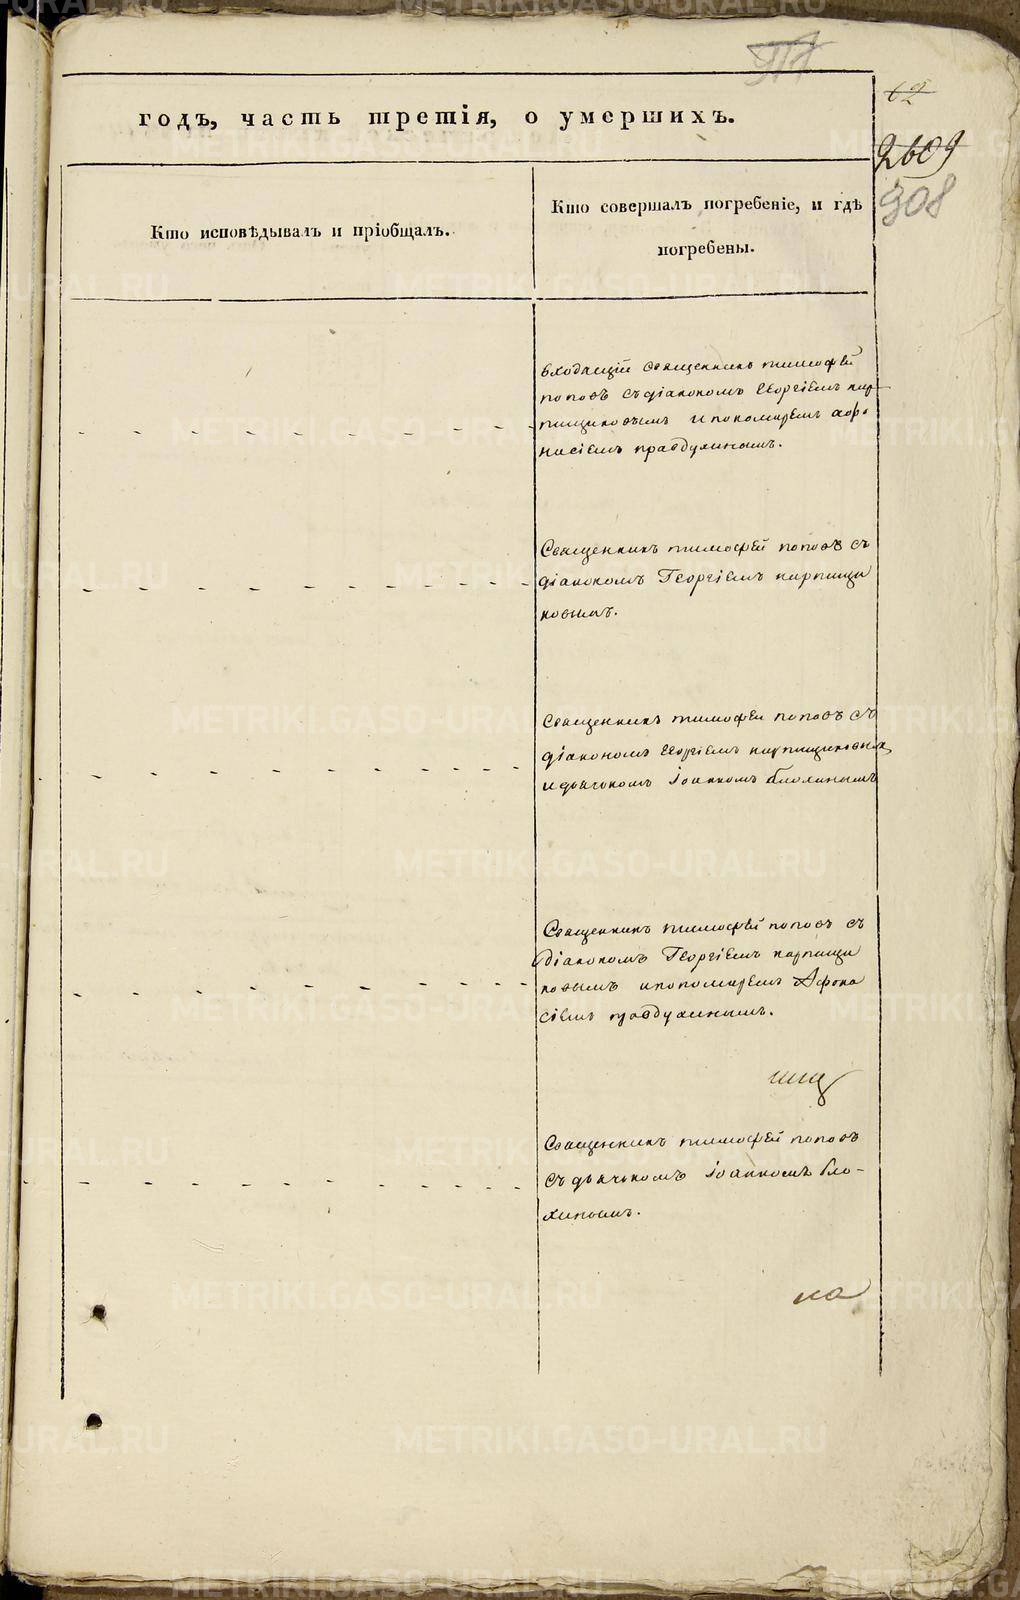 62
2609
308
годъ, часть третія, о умершихъ.
Кто исповѣдывалъ и пріобщалъ.
Кто совершалъ погребеніе, и гдѣ
погребены.
входящій священникъ тимофей
поповъ съ діакономъ Георгіемъ кир-
пищиковымъ и пономаремъ афо
насіемъ правдухинымъ.
Священникъ тимофей поповъ съ
діакономъ Георгіемъ кирпищи
ковымъ.
Священникъ тимофей поповъ съ
діакономъ Георгіемъ кирпищиковым
и дьячкомъ Іоанномъ блохинымъ
Священникъ тимофей поповъ съ
діакономъ Георгіемъ кирпищи
ковымъ и пономаремъ Афона
сіемъ правдухинымъ.
Священникъ тимофей поповъ
съ дьячкомъ Іоанномъ бло-
хинымъ.
ка
METRIKI.GASO-URAL.RU